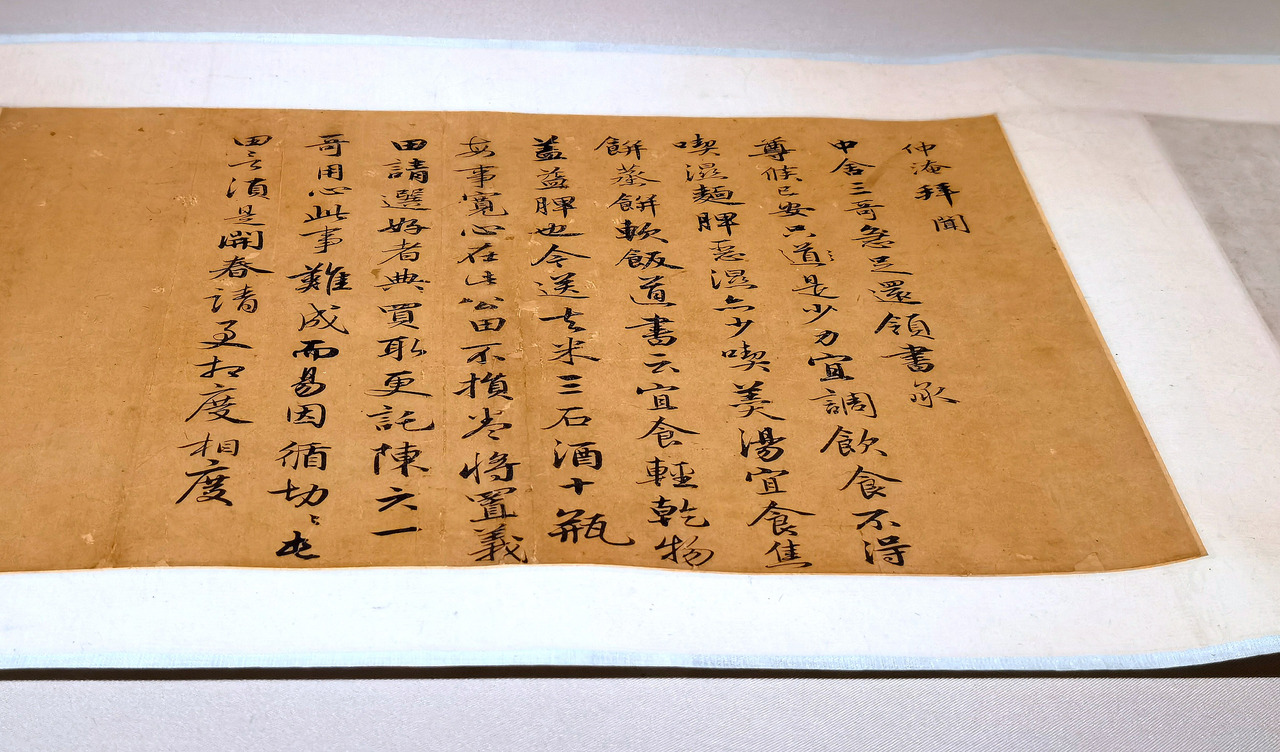 仲淹拜聞
中舍三哥急足還領書承
尊候已安只道是少力宜調飲食不得
喫濕麵脾惡濕亦少喫羹湯宜食焦
餅蒸餅軟飯道書云宜食輕乾物
蓋益脾也今送去米三石酒十瓶
每事寬心在此公田不損卷將置義
田請選好者典買取更託陳六一
哥用心此事難成而易因循切〻也
田言須是開春請更相度相度